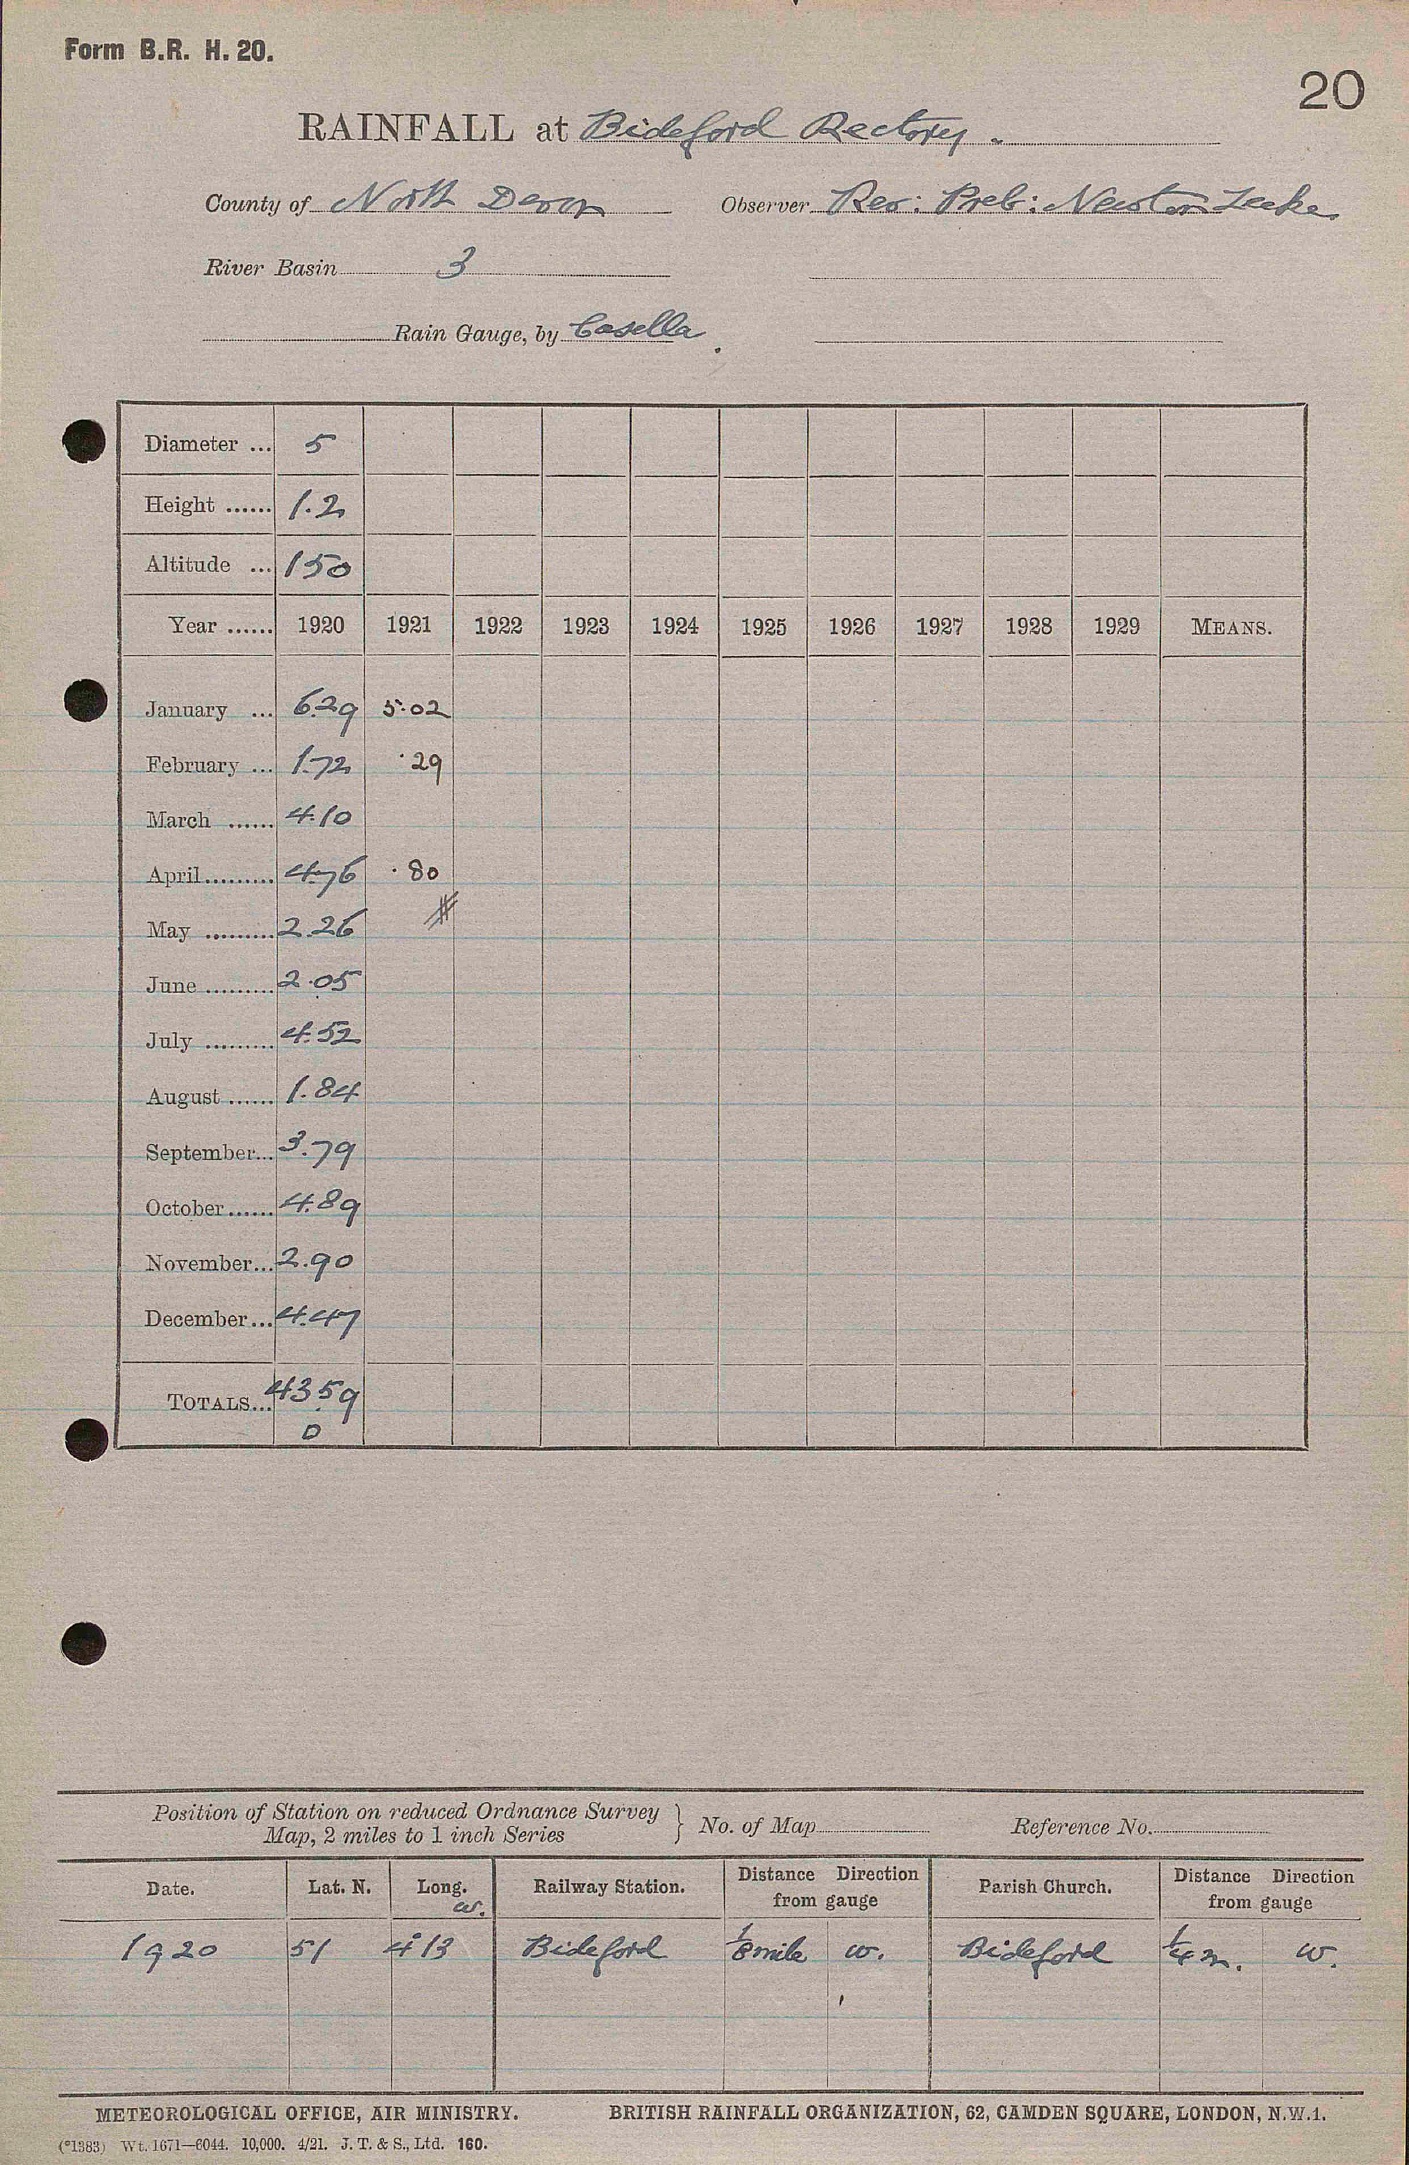 Form B.R. H. 20.
20
RAINFALL at Bideford Rectory.
County of North Devon Observer Rev: Preb: Newton Leeke
River Basin 3
Rain Gauge, by Casella.
Diameter ... 5
Height ...... 1.2
Altitude ... 150
Year ...... 1920 1921 1922 1923 1924 1925 1926 1927 1928 1929 MEANS.
January ... 6.29 5.02
February ... 1.72 .29
March ...... 4.10
April ......... 4.76 .80
May ......... 2.26
June ......... 2.05
July ......... 4.52
August ...... 1.84
September... 3.79
October ...... 4.89
November... 2.90
December... 4.47
TOTALS... 43.59
D
Position of Station on reduced Ordnance Survey
Map, 2 miles to 1 inch Series } No. of Map Reference No.
Date. Lat. N. Long. W. Railway Station. Distance Direction from gauge Parish Church. Distance Direction from gauge
1920 51 4°13 Bideford 1/8 mile W. Bideford 1/4 m. W.
METEOROLOGICAL OFFICE, AIR MINISTRY. BRITISH RAINFALL ORGANIZATION, 62, CAMDEN SQUARE, LONDON, N.W.1.
(*1383) Wt. 1671—6044. 10,000. 4/21. J. T. & S., Ltd. 160.